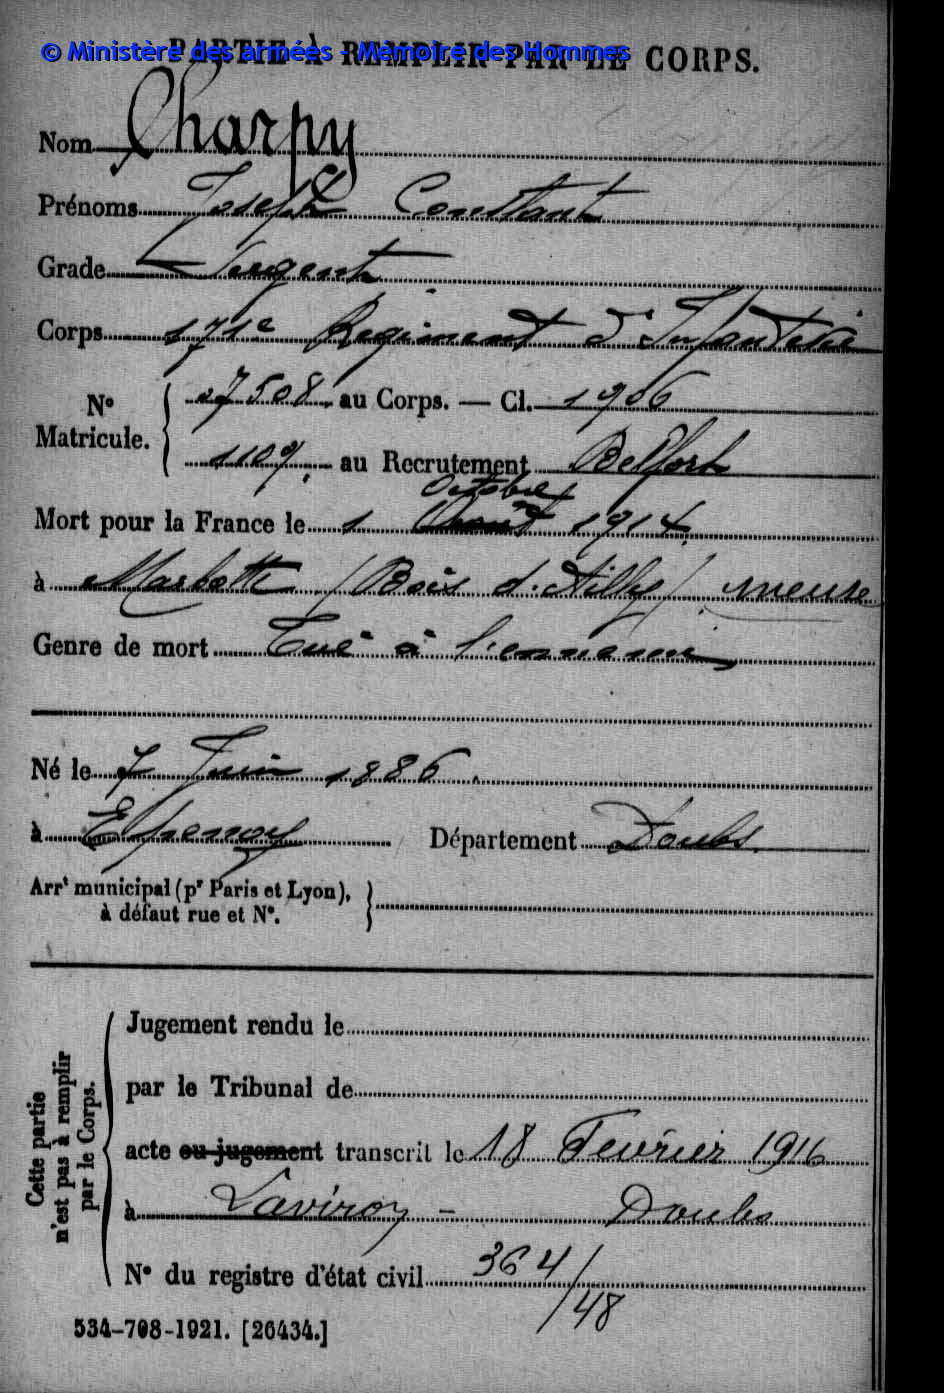 © Ministère des armées - Mémoire des Hommes
PARTIE À REMPLIR PAR LE CORPS.
Nom Charpy
Prénoms Joseph Constant
Grade Sergent
Corps 171e Régiment d'Infanterie
N° Matricule. 7508. au Corps. — Cl. 1906
1109. au Recrutement Belfort
Octobre
Mort pour la France le 1 Aout 1914.
à Marbotte (Bois d'Ailly) meuse
Genre de mort Tué à l'ennemi
Né le 7 Juin 1886.
à Epenoy Département Doubs.
Arrt municipal (pr Paris et Lyon),
à défaut rue et N°.
Cette partie
n'est pas à remplir
par le Corps.
Jugement rendu le
par le Tribunal de
acte ou jugement transcrit le 18 Fevrier 1916
à Laviron - Doubs
N° du registre d'état civil 364/48
534-708-1921. [26434.]